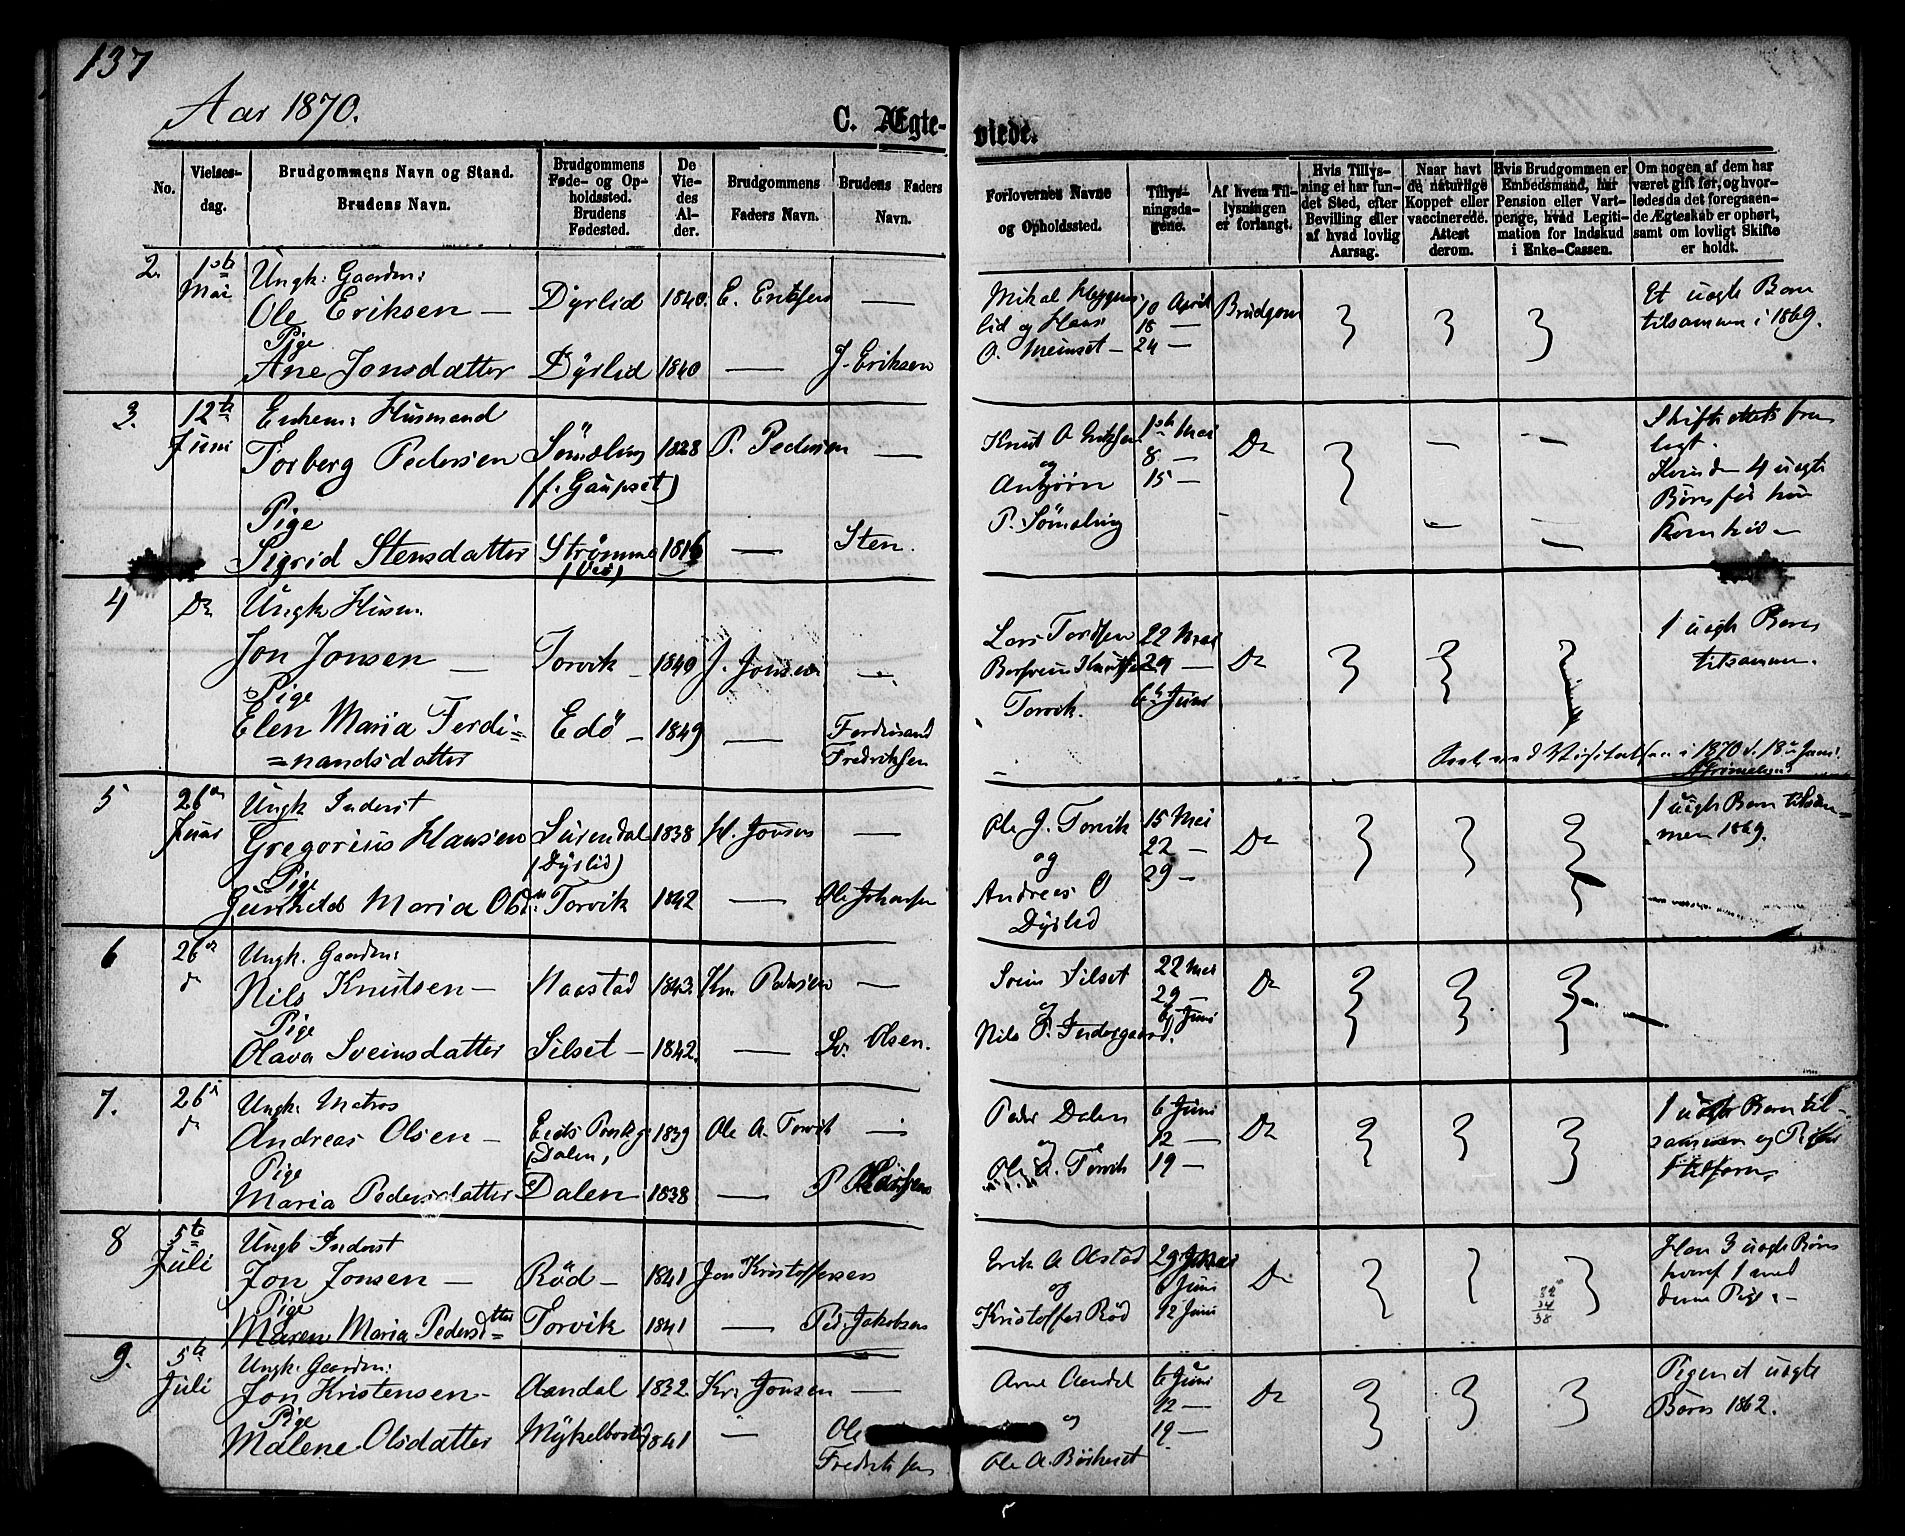 137
Aar 1870.
C. Ægte-
viede.
No.
Vielses-
dag.
Brudgommens Navn og Stand.
Brudens Navn.
Brudgommens
Føde- og Op-
holdssted.
Brudens
Fødested.
De
Vie-
des
Al-
der.
Brudgommens
Faders Navn.
Brudens Faders
Navn.
Forlovernes Navne
og Opholdssted.
Tillys-
ningsda-
gene.
Af hvem Til-
lysningen
er forlangt.
Hvis Tillys-
ning ei har fun-
det Sted, efter
Bevilling eller
af hvad lovlig
Aarsag.
Naar havt
de naturlige
Kopper eller
vaccinerede.
Attest
derom.
Hvis Brudgommen er
Embedsmand, har
Pension eller Vart-
penge, hvad Legiti-
mation for Indskud
i Enke-Cassen.
Om nogen af dem har
været gift før, og hvor-
ledes da det foregaaen-
de Ægteskab er ophørt,
samt om lovligt Skifte
er holdt.
2. 1ste Mai
Ungk: Gaardm:
Ole Eriksen — Dyrlid 1840. E. Eriksen —
Pige
Ane Jonsdatter Dyrlid 1840 — J. Eriksen
lid og Hans
10 April
18 —
24 —
Brudgom
Et uægte Barn
tilsammen i 1869.
3. 12te Juni
Enkem: Husmand
Torberg Pedersen Sømeling 1828 P. Pedersen —
(f. Gaupset)
Pige
Sigrid Stensdatter Strømme 1816 — Sten.
Knut A
og
Anbjørn
P. Sømeling
1ste Mai
8 —
15 —
Do
Kvinden 4 uægte
Børn før hun
4 Do
Ungk Husm.
Jon Jonsen — Torvik — 1840 J. Jonsen —
Pige
Elen Maria Ferdi= Edø — 1849 — Ferdinand
=nandsdatter Fredriksen
Lars Tordsen
Torvik.
22 Mai
29 —
6te Juni
Do
1 uægte Barn
tilsammen.
1870 d. 18de Juni
5 26de Juni
Ungk Inderst
Gregorius Hansen Surendal 1838 H. Jonsen —
(Dyrlid)
Pige
Gunhild Maria Olsdtr Torvik 1842 — Ole Johansen
Ole J. Torvik
og
Andreas O
Dyrlid
15 Mai
22 —
29 —
Do
1 uægte Barn tilsam=
men 1869.
6 26de d
Ungk. Gaardm:
Nils Knutsen — Naastad 1843. Kn. Pedersen —
Pige
Olava Sveinsdatter Silset — 1842. — Sv. Olsen.
Svein Silset
og
Nils P. Indergaard.
22 Mai
29 —
6 Juni
Do
7. 26de d
Ungk. Matros
Andreas Olsen — Eids Prestgj 1839 Ole A. Torvik —
(Dalen)
Pige
Maria Pedersdatter Dalen 1838 — P.
Peder Dalen
og
Ole A. Torvik
6 Juni
12 —
19 —
Do
1 uægte Barn til-
sammen og Pigen
1 tilforn.
8 5te Juli
Ungk Inderst
Jon Jonsen — Rød — 1841 Jon Kristoffersen
Pige
Maren Maria Pedersdtter Torvik 1841 — Ped. Jakobsen
Erik A Alstad
og
Kristoffer Rød
29
6 Juni
12 Juni
Do
Han 3 uægte Børn
hvoraf 1 med
denne Pige. —
9. 5te Juli
Ungk. Gaardm:
Jon Kristensen — Aandal 1832 Kr. Jonsen —
Pige
Malene Olsdatter Mykelbost 1841 " Ole
Fredriksen
Arne Aandal
og
Ole A.
6 Juni
12 —
19 —
Do
Pigen et uægte
Barn 1862.
5